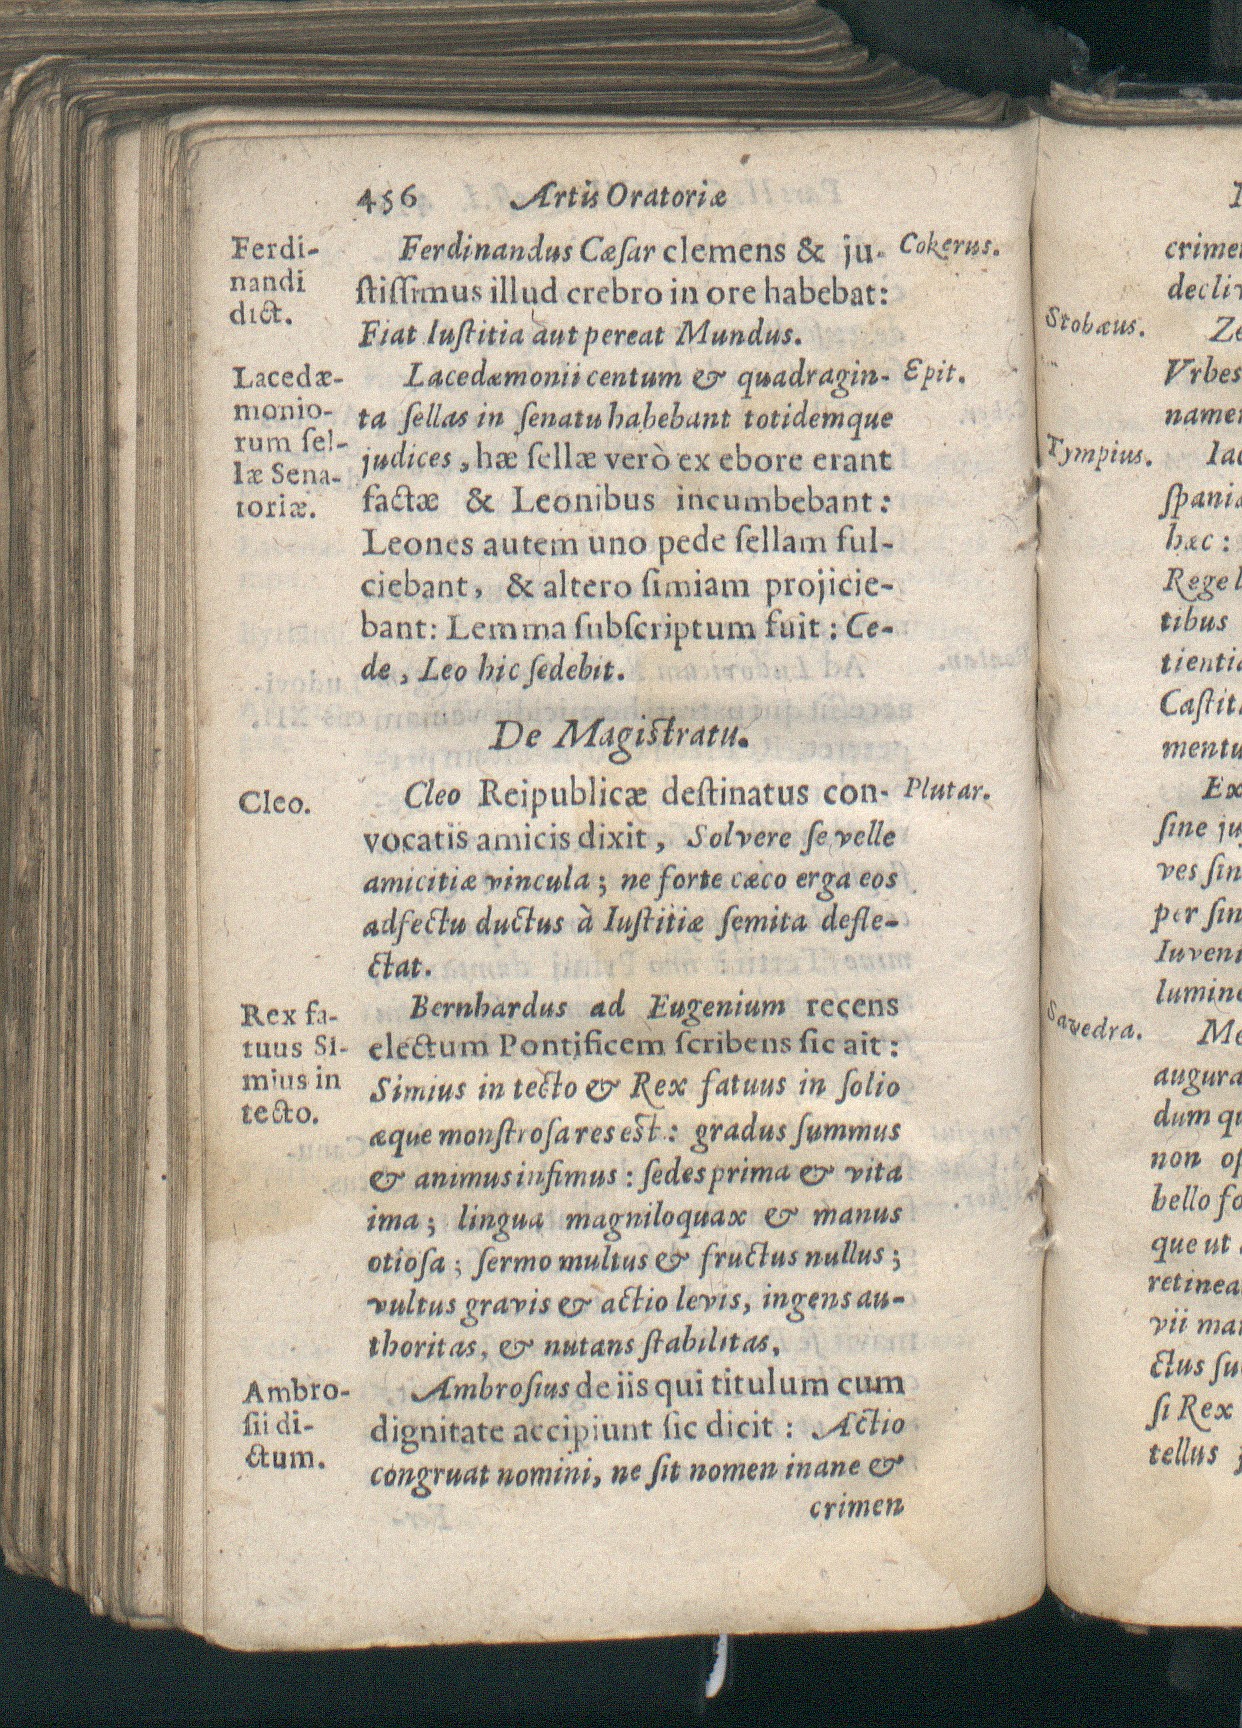 456 Artis Oratoriæ
Ferdi-
nandi
dict.
Ferdinandus Cæſar clemens & ju-
ſtiſſimus illud crebro in ore habebat:
Fiat Iuſtitia aut pereat Mundus.
Cokerus.
Lacedæ-
monio-
rum ſel-
læ Sena-
toriæ.
Lacedæmonii centum & quadragin-
ta ſellas in ſenatu habebant totidemque
judices, hæ ſellæ verò ex ebore erant
factæ & Leonibus incumbebant:
Leones autem uno pede ſellam ful-
ciebant, & altero ſimiam projicie-
bant: Lemma ſubſcriptum fuit: Ce-
de, Leo hic ſedebit.
Epit.
De Magiſtratu.
Cleo.
Cleo Reipublicæ deſtinatus con-
vocatis amicis dixit, Solvere ſe velle
amicitiæ vincula; ne forte cæco erga eos
adfectu ductus à Iuſtitiæ ſemita defle-
ctat.
Plutar.
Rex fa-
tuus Si-
mius in
tecto.
Bernhardus ad Eugenium recens
electum Pontificem ſcribens ſic ait:
Simius in tecto & Rex fatuus in ſolio
æque monſtroſa res eſt: gradus ſummus
& animus infimus: ſedes prima & vita
ima; lingua magniloquax & manus
otioſa; ſermo multus & fructus nullus;
vultus gravis & actio levis, ingens au-
thoritas, & nutans ſtabilitas.
Ambro-
ſii di-
ctum.
Ambroſius de iis qui titulum cum
dignitate accipiunt ſic dicit: Actio
congruat nomini, ne ſit nomen inane &
crimen
crimen
decliv
Stobæus.
Ze
Vrbes
namen
Tympius.
Iac
ſpania
hæc:
Rege l
tibus
tientia
Caſtit
mentu
Ex
ſine ju
ves ſin
per ſin
Iuveni
lumine
Savedra.
Me
augura
dum qu
non op
bello fo
que ut
retinea
vii man
ctus ſu
ſi Rex
tellus